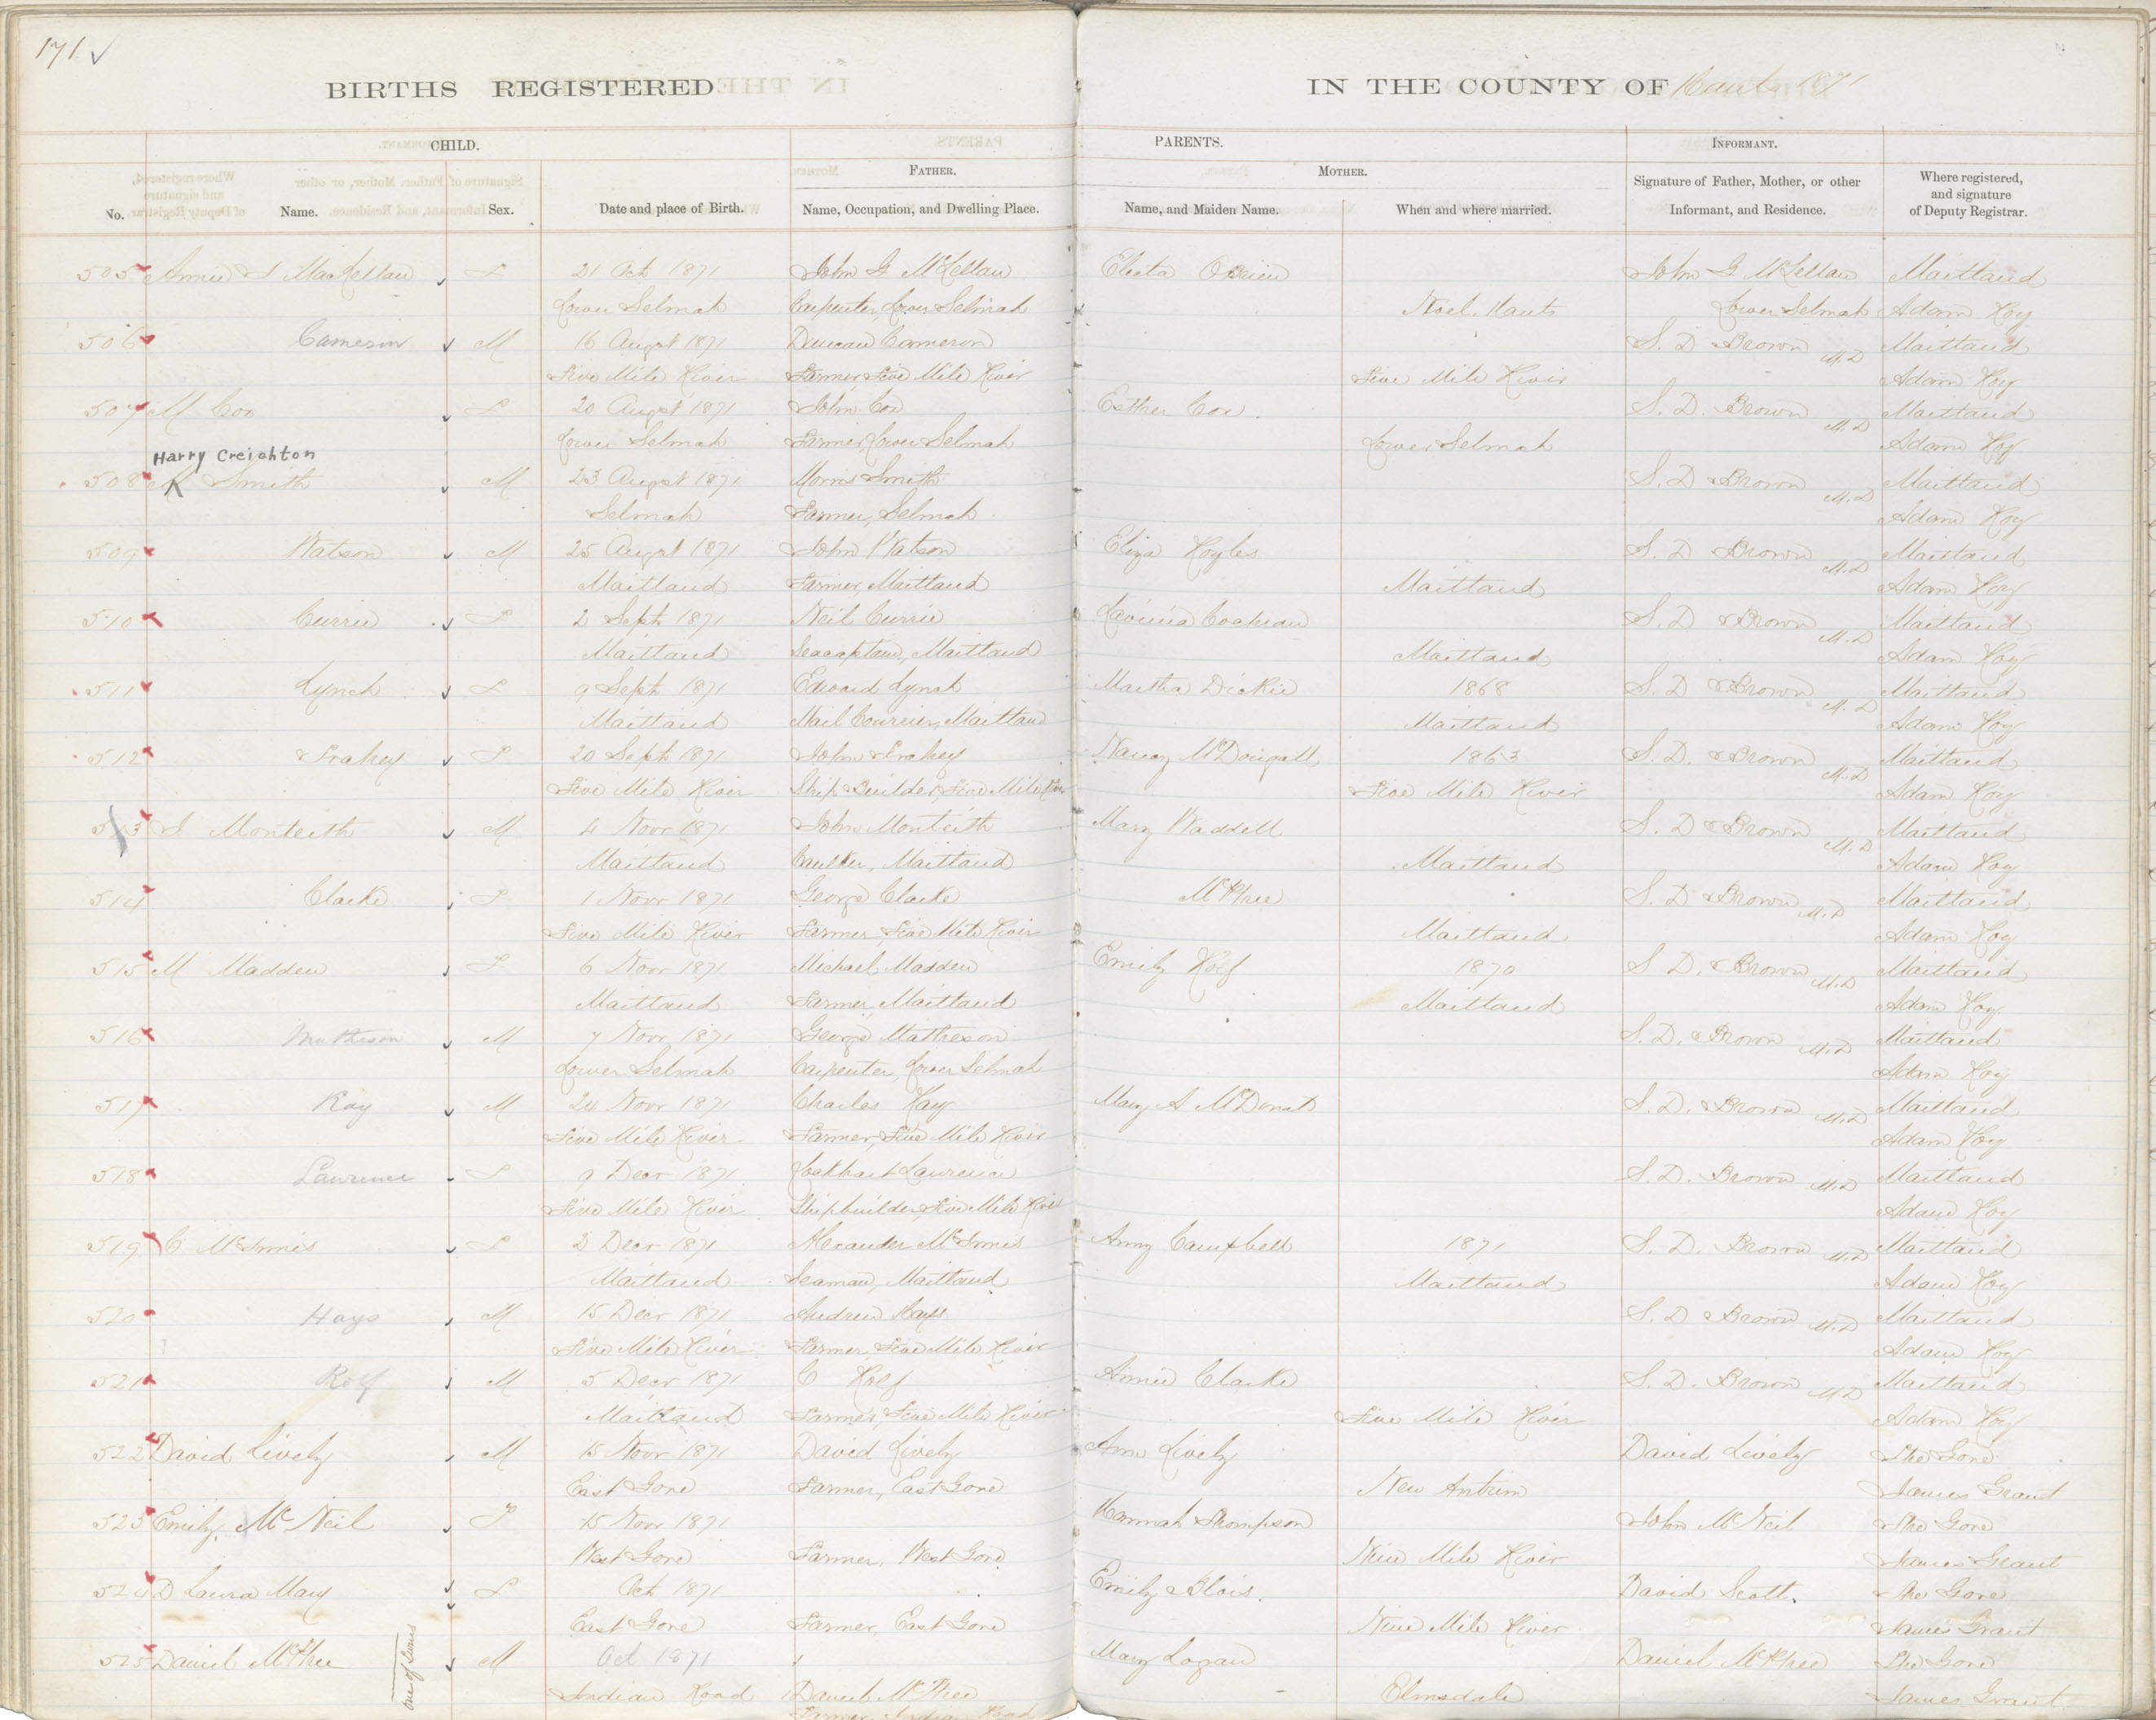 171 ✓
BIRTHS REGISTERED IN THE COUNTY OF Hants 1871
CHILD. PARENTS. INFORMANT.
FATHER. MOTHER.
No. Name. Sex. Date and place of Birth. Name, Occupation, and Dwelling Place. Name, and Maiden Name. When and where married. Signature of Father, Mother, or other Informant, and Residence. Where registered, and signature of Deputy Registrar.
505 Annie S MacLellan F 21 Oct 1871 John G McLellan Electa OBrien John G McLellan Maitland
Lower Selmah Carpenter, Lower Selmah Noel, Hants Lower Selmah Adam Roy
506 Cameron M 16 Augst 1871 Duncan Cameron S. D Brown M.D Maitland
Five Mile River Farmer, Five Mile River Five Mile River Adam Roy
507 M Cox F 20 Augst 1871 John Cox Esther Cox S. D. Brown M.D Maitland
Lower Selmah Farmer, Lower Selmah Lower Selmah Adam Roy
Harry Creighton
508 Smith M 23 Augst 1871 Morris Smith S. D Brown M.D Maitland
Selmah Farmer, Selmah Adam Roy
509 Watson M 25 Augst 1871 John Watson Eliza Hoyles S. D Brown M.D Maitland
Maitland Farmer, Maitland Maitland Adam Roy
510 Currie F 2 Sept 1871 Neil Currie Lavinia Cochran S. D Brown M.D Maitland
Maitland Seacaptain, Maitland Maitland Adam Roy
511 Lynch F 9 Sept 1871 Edward Lynch Martha Dickie 1868 S. D Brown M.D Maitland
Maitland Mail Courrier, Maitland Maitland Adam Roy
512 Frahey F 20 Sept 1871 John Frahey Nancy McDougall 1863 S. D. Brown M.D Maitland
Five Mile River Ship Builder, Five Mile River Five Mile River Adam Roy
513 S Monteith M 4 Novr 1871 John Monteith Mary Waddell S. D Brown M.D Maitland
Maitland Caulker, Maitland Maitland Adam Roy
514 Clarke F 1 Novr 1871 George Clarke McPhee S. D Brown M.D Maitland
Five Mile River Farmer, Five Mile River Maitland Adam Roy
515 M Madden F 6 Novr 1871 Michael Madden Emily Rolf 1870 S D. Brown M.D Maitland
Maitland Farmer, Maitland Maitland Adam Roy
516 Mathison M 7 Novr 1871 George Matheson S. D. Brown M.D Maitland
Lower Selmah Carpenter, Lower Selmah Adam Roy
517 Ray M 24 Novr 1871 Charles Ray Mary A McDonald S. D. Brown M.D Maitland
Five Mile River Farmer, Five Mile River Adam Roy
518 Lawrence F 9 Decr 1871 Lockhart Lawrence S. D. Brown M.D Maitland
Five Mile River Shipbuilder, Five Mile River Adam Roy
519 C McInnis F 2 Decr 1871 Alexander McInnis Anny Campbell 1871 S. D. Brown M.D Maitland
Maitland Seaman, Maitland Maitland Adam Roy
520 Hays M 15 Decr 1871 Andrew Hays S. D Brown M.D Maitland
Five Mile River Farmer, Five Mile River Adam Roy
521 Rolf M 5 Decr 1871 C Rolf Annie Clarke S. D. Brown M.D Maitland
Maitland Farmer, Five Mile River Five Mile River Adam Roy
522 David Lively M 15 Novr 1871 David Lively Ann Lively David Lively The Gore
East Gore Farmer, East Gore New Antrim James Grant
523 Emily McNeil F 15 Novr 1871 Hannah Thompson John McNeil The Gore
West Gore Farmer, West Gore Nine Mile River James Grant
524 D Laura Mary F Oct 1871 Emily Blois. David Scott. The Gore
East Gore Farmer, East Gore Nine Mile River James Grant
525 Daniel McPhee one of twins M Oct 1871 Mary Logan Daniel McPhee The Gore
Indian Road Daniel McPhee Elmsdale James Grant
Farmer, Indian Road